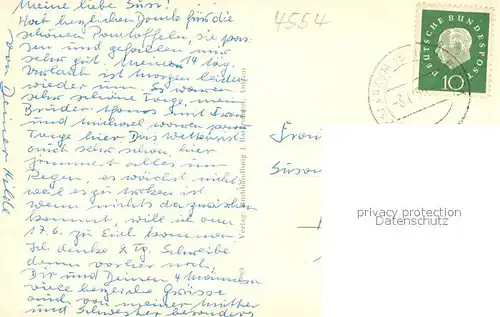 Meine liebe Susi!
Hab herzlichen Dank für die
schönen Pantoffeln, sie pas-
sen und gefallen mir
sehr gut. Meine 14 täg.
Urlaub ist morgen leider
wieder um. Es waren
sehr schöne Tage, mein
Bruder Hans mit Frau
und Michael waren paar
Tage hier. Das Wetter ist
auch sehr schön hier
jammert alles um
Regen, es wächst nichts
weil es zu trocken ist
wenn nichts dazwischen
kommt, will ich am
17.6. zu Euch kommen
Ich denke 8 Tg. Schreibe
dann vorher noch.
Dir und Deinen 4 Männern
viele herzliche Grüsse
auch von meiner Mutter
und Schwester besonders
von Deiner Hilde
4554
DEUTSCHE BUNDESPOST
10
Frau
Susan
privacy protection
copyright